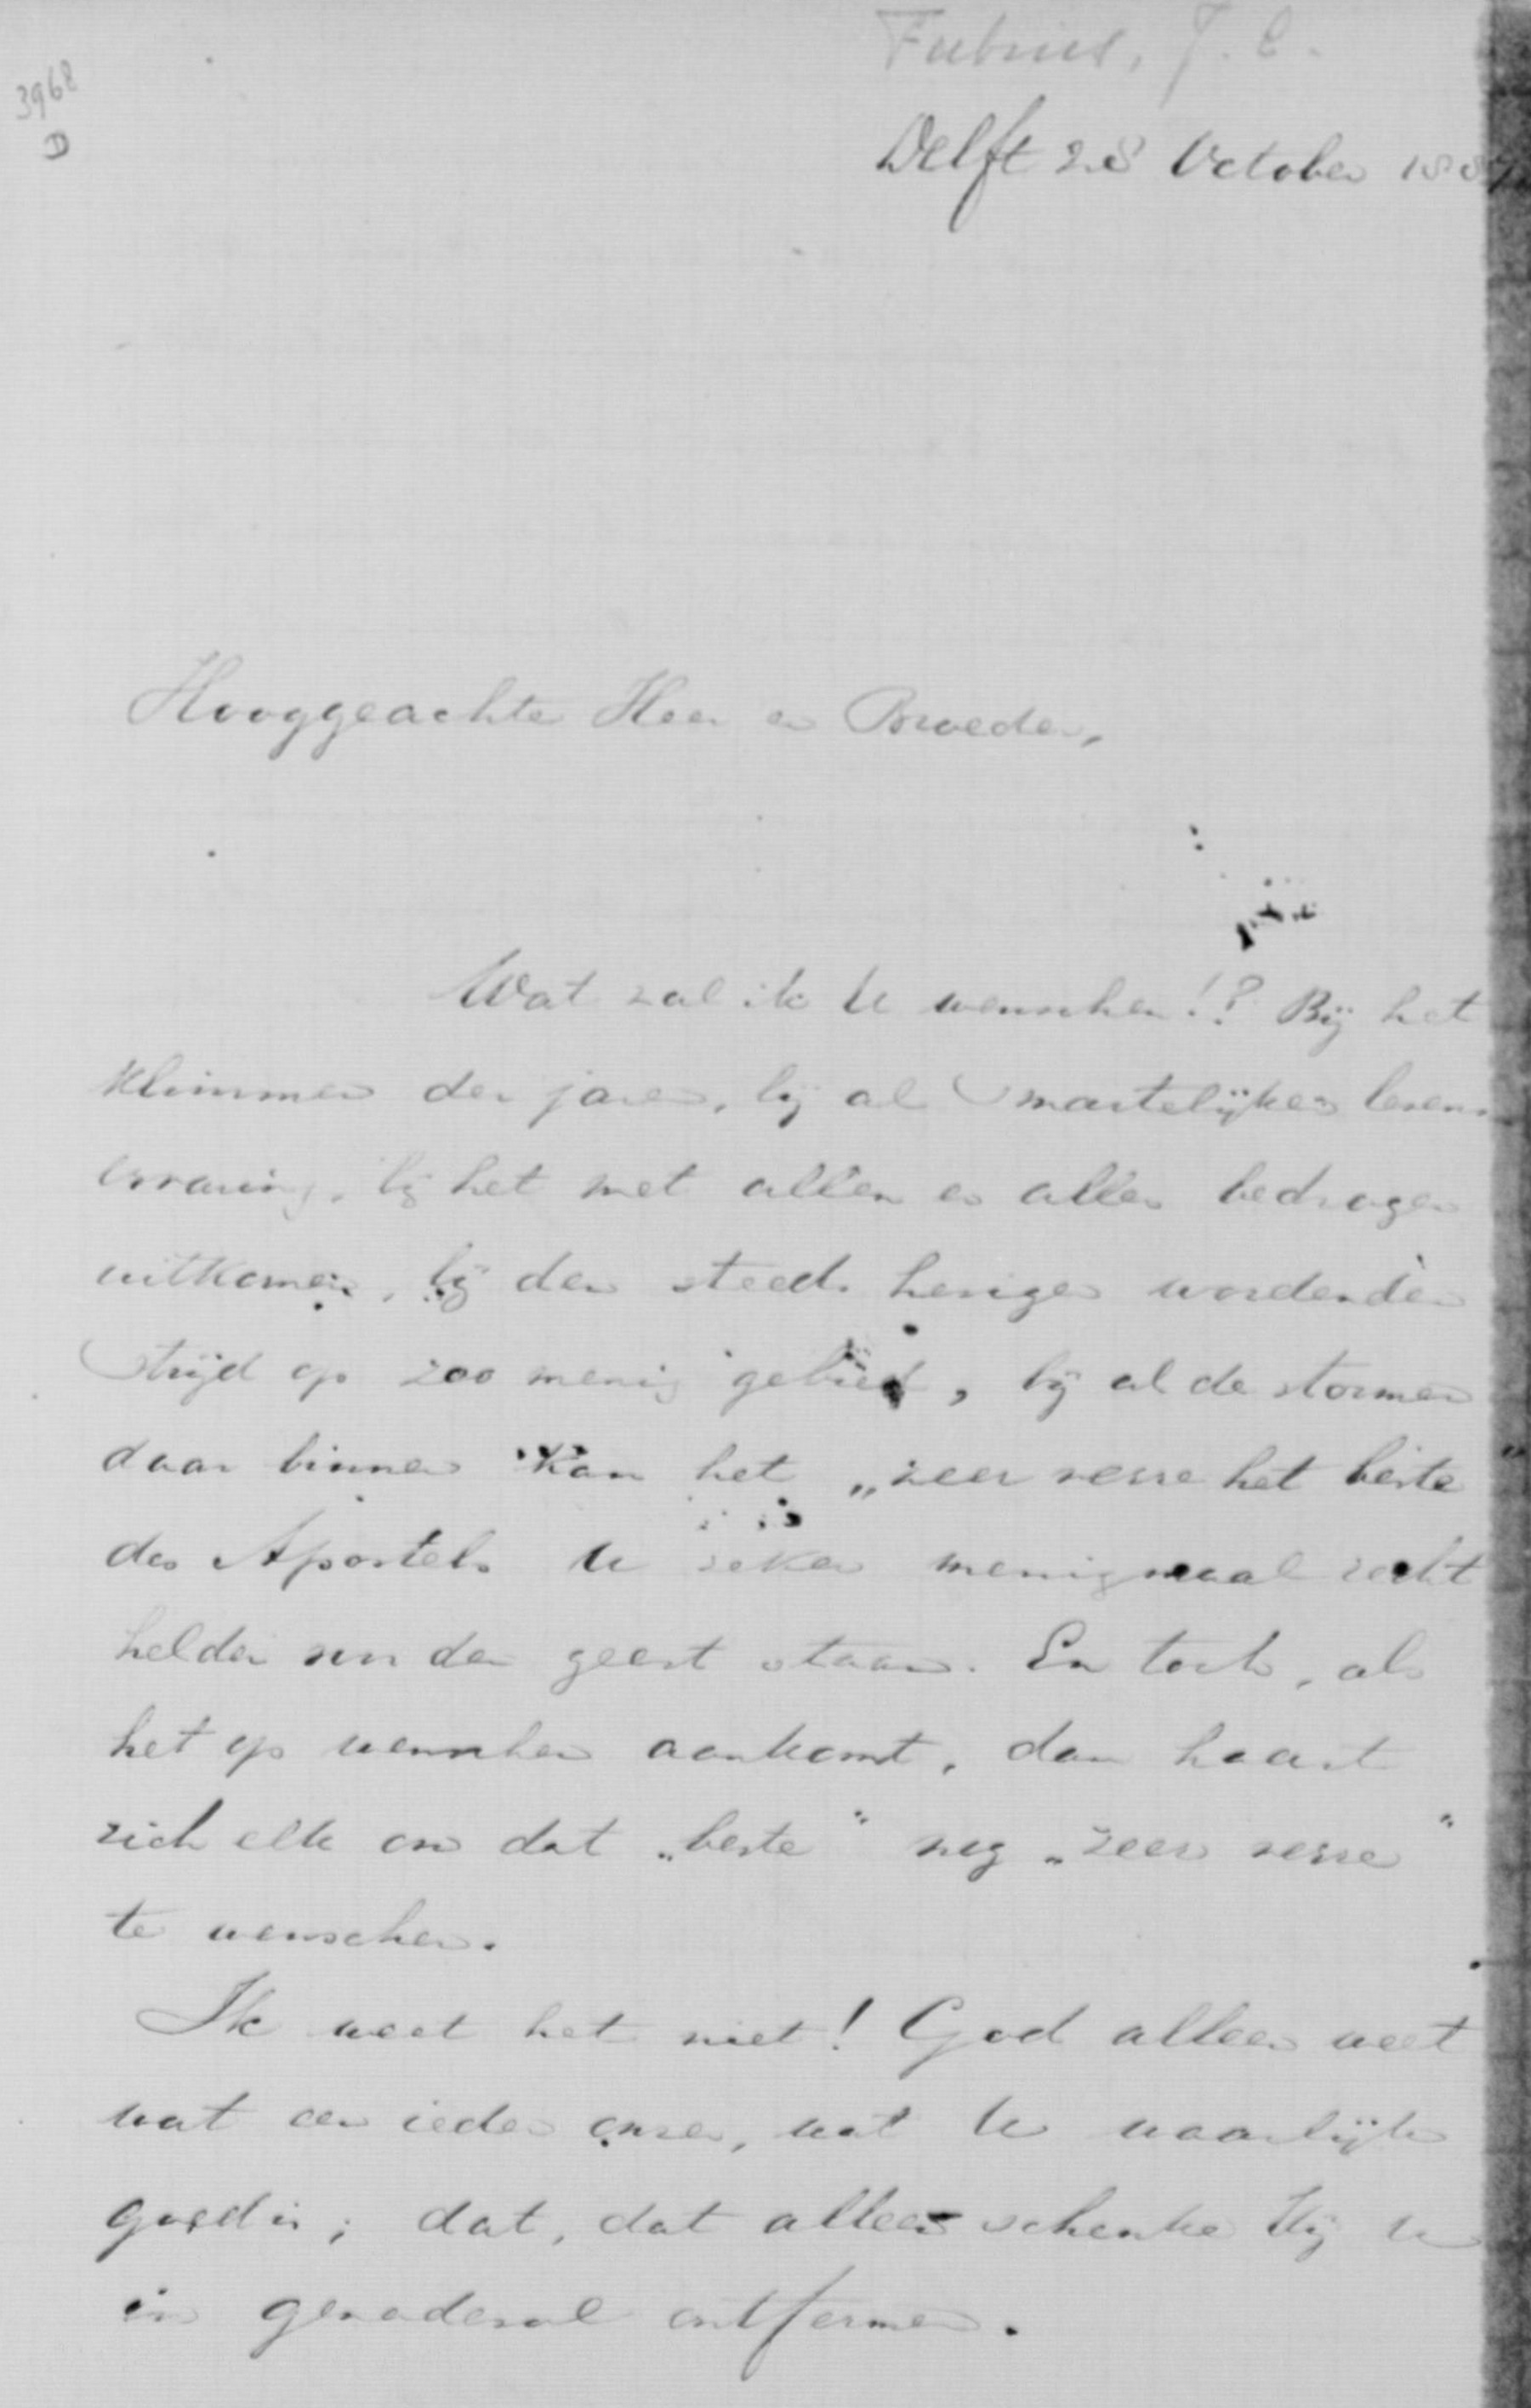 Fabius, J. C.
3968
D
Delft 28 October 188
Hooggeachte Heer en Broeder,
Wat zal ik U wenschen!? Bij het
klimmen der jaren, bij al smartelijker levens-
ervaring, bij het met allen en alles bedrogen
uitkomen, bij den steeds heviger wordenden
strijd op zoo menig gebied, bij al de stormen
daar binnen kan het „zeer verre het beste"
des Apostels U zeker menigmaal recht
helder voor den geest staan. En toch, als
het op wenschen aankomt, dan haast
zich elk om dat „beste" nog „zeer verre"
te wenschen.
Ik weet het niet! God alleen weet
wat een ieder onzer, wat U waarlijk
goed is; dat, dat alleen schenke Hij U
in genadevol ontfermen.